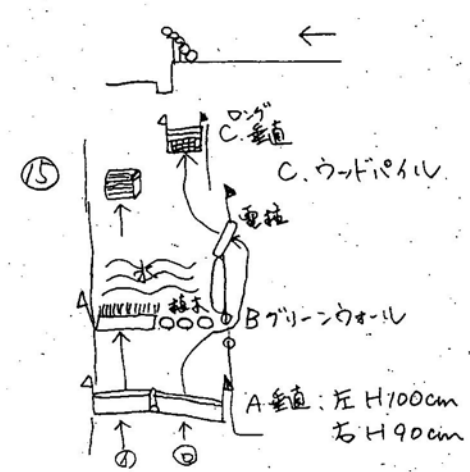 ロング
C. 垂直
⑮
C. ウッドパイル
電柱
水
植木
Bグリーンウォール
A垂直:左 H100cm
右 H90cm
イ ロ